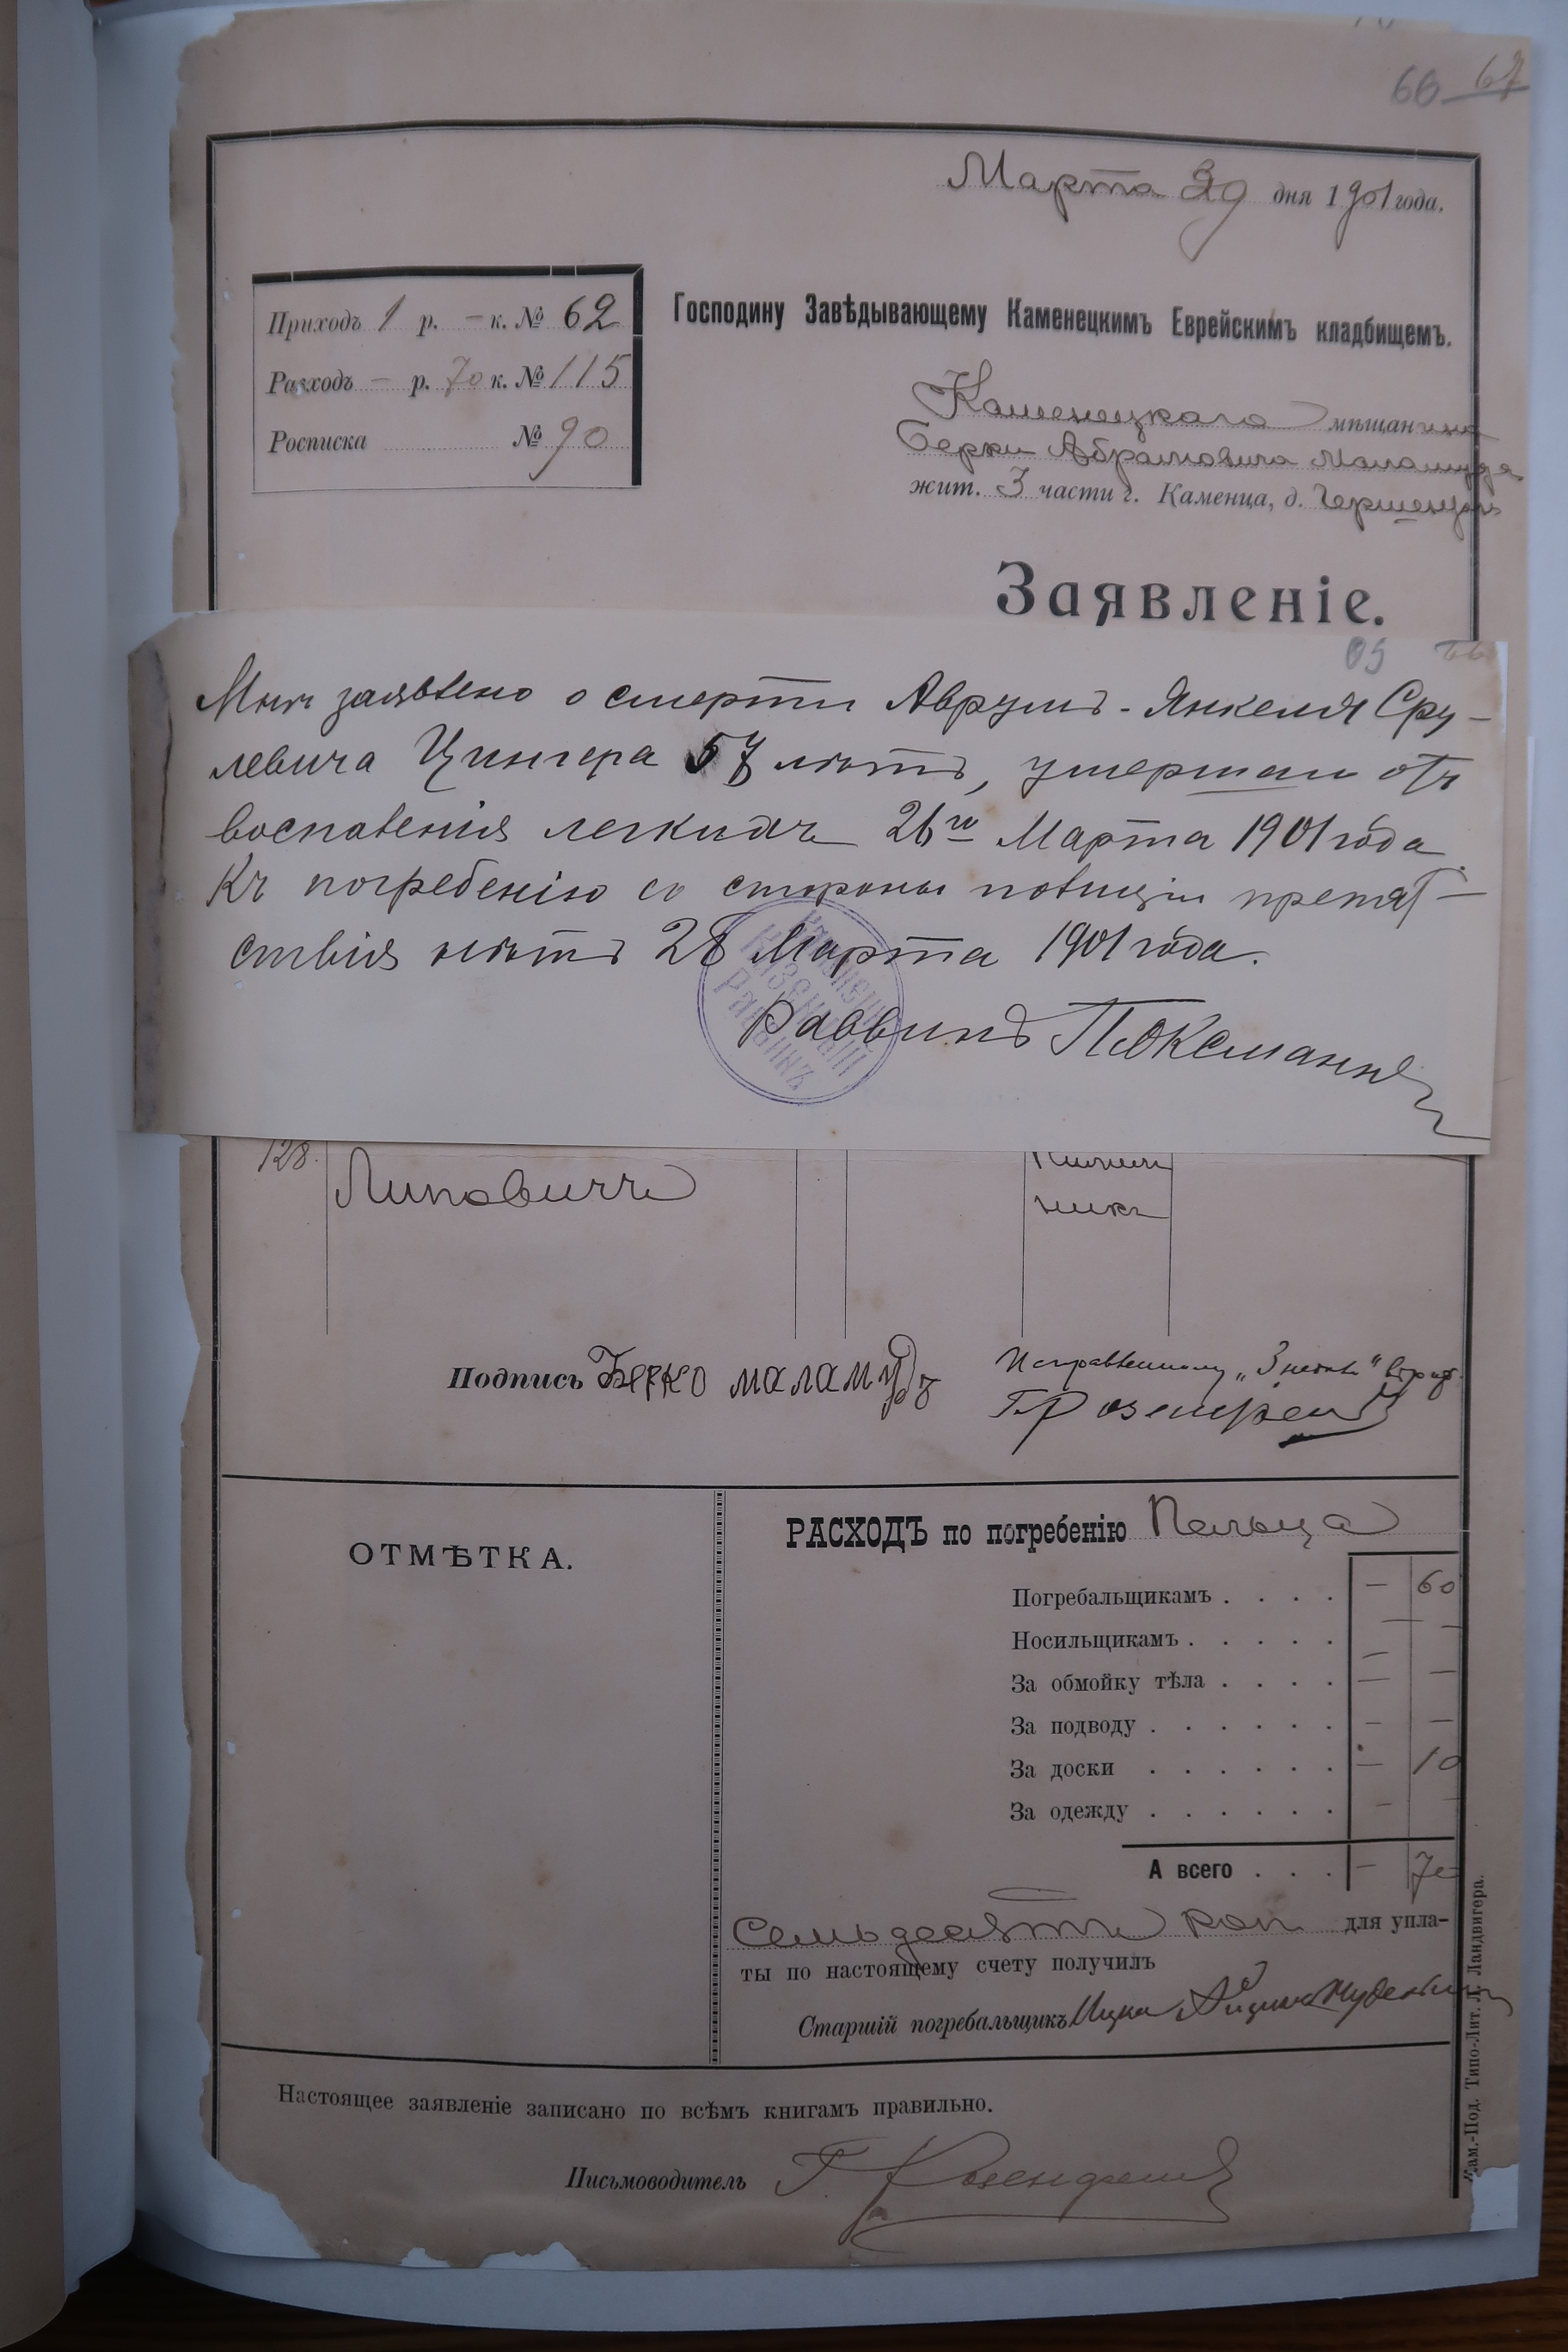 66 67
Марта 29 дня 1901 года.
Приходъ 1 р. – к. № 62
Расходъ – р. 70 к. № 115
Росписка № 90
Господину Завѣдывающему Каменецкимъ Еврейскимъ кладбищемъ.
Каменецкаго мѣщанина
Берки Абрамовича Маламуда
жит. 3 части г. Каменца, д.
Заявленіе.
65
Мнѣ заявлено о смерти Аврумъ-Янкеля Сру-
левича Цингера 57 лѣтъ, умершаго отъ
воспаленія легкихъ 26го Марта 1901 года.
Къ погребенію со стороны полиціи препят-
ствія нѣтъ 28 Марта 1901 года.
Казенный
Раввинъ
Раввинъ
128.
Липовичъ
никъ
Подпись Берко маламудъ
Исправленному „3 "
ОТМѢТКА.
РАСХОДЪ по погребенію
Погребальщикамъ . . . . – 60
Носильщикамъ . . . . . – –
За обмойку тѣла . . . . – –
За подводу . . . . . . – –
За доски . . . . . . – 10
За одежду . . . . . . – –
А всего . . . – 70
Семьдесятъ коп для упла-
ты по настоящему счету получилъ
Старшій погребальщикъ Ицко
Настоящее заявленіе записано по всѣмъ книгамъ правильно.
Письмоводитель Г.
Кам.-Под. Типо-Лит. Л. Ландвигера.